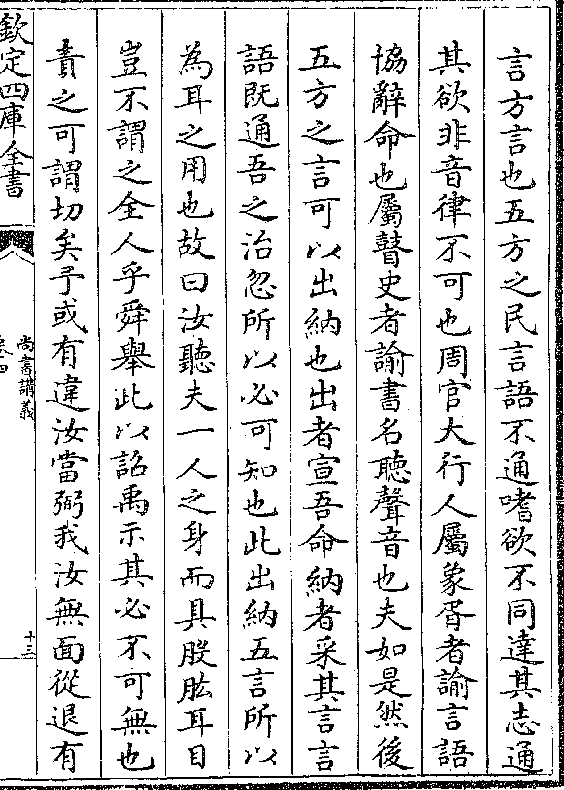 言方言也五方之民言語不通嗜欲不同達其志通
其欲非音律不可也周官大行人屬象胥者諭言語
協辭命也屬瞽史者諭書名聽聲音也夫如是然後
五方之言可以出納也出者宣吾命納者采其言言
語既通吾之治忽所以必可知也此出納五言所以
為耳之用也故曰汝聽夫一人之身而具股肱耳目
豈不謂之全人乎舜舉此以詔禹示其必不可無也
責之可謂切矣予或有違汝當弼我汝無面從退有
欽定四庫全書
尚書講義
卷四
十三